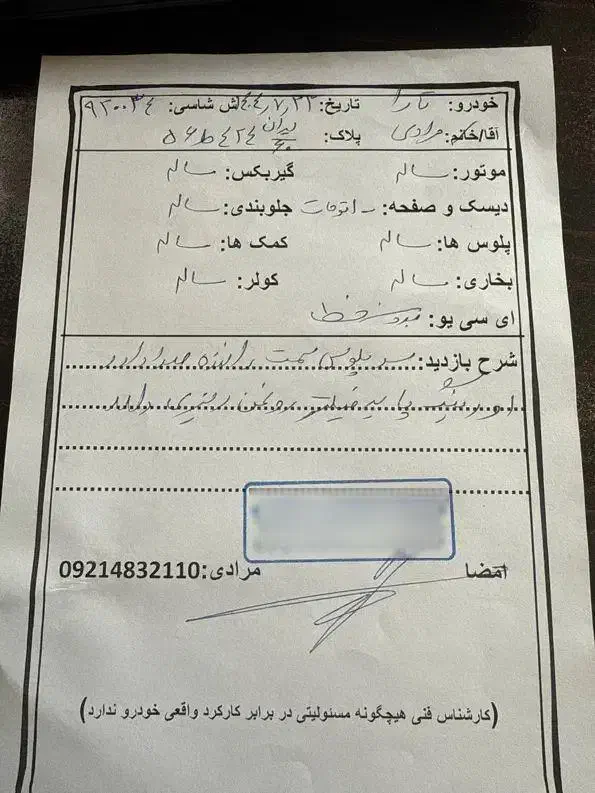 خودرو: تارا تاریخ: ۴۰۴٫۷٫۲۲ ش شاسی: ۹۲۰۰۳۴
آقا/خانم: مرادی پلاک: ایران ۶۰ ۴۲۴ ط ۵۶
موتور: سالم گیربکس: سالم
دیسک و صفحه: اتومات جلوبندی: سالم
پلوس ها: سالم کمک ها: سالم
بخاری: سالم کولر: سالم
ای سی یو: بدون خطا
شرح بازدید: سر پلوس سمت راننده صدا دارد
اورینگ پایه فیلتر روغن روغن ریزی دارد
امضا مرادی:09214832110
(کارشناس فنی هیچگونه مسئولیتی در برابر کارکرد واقعی خودرو ندارد)